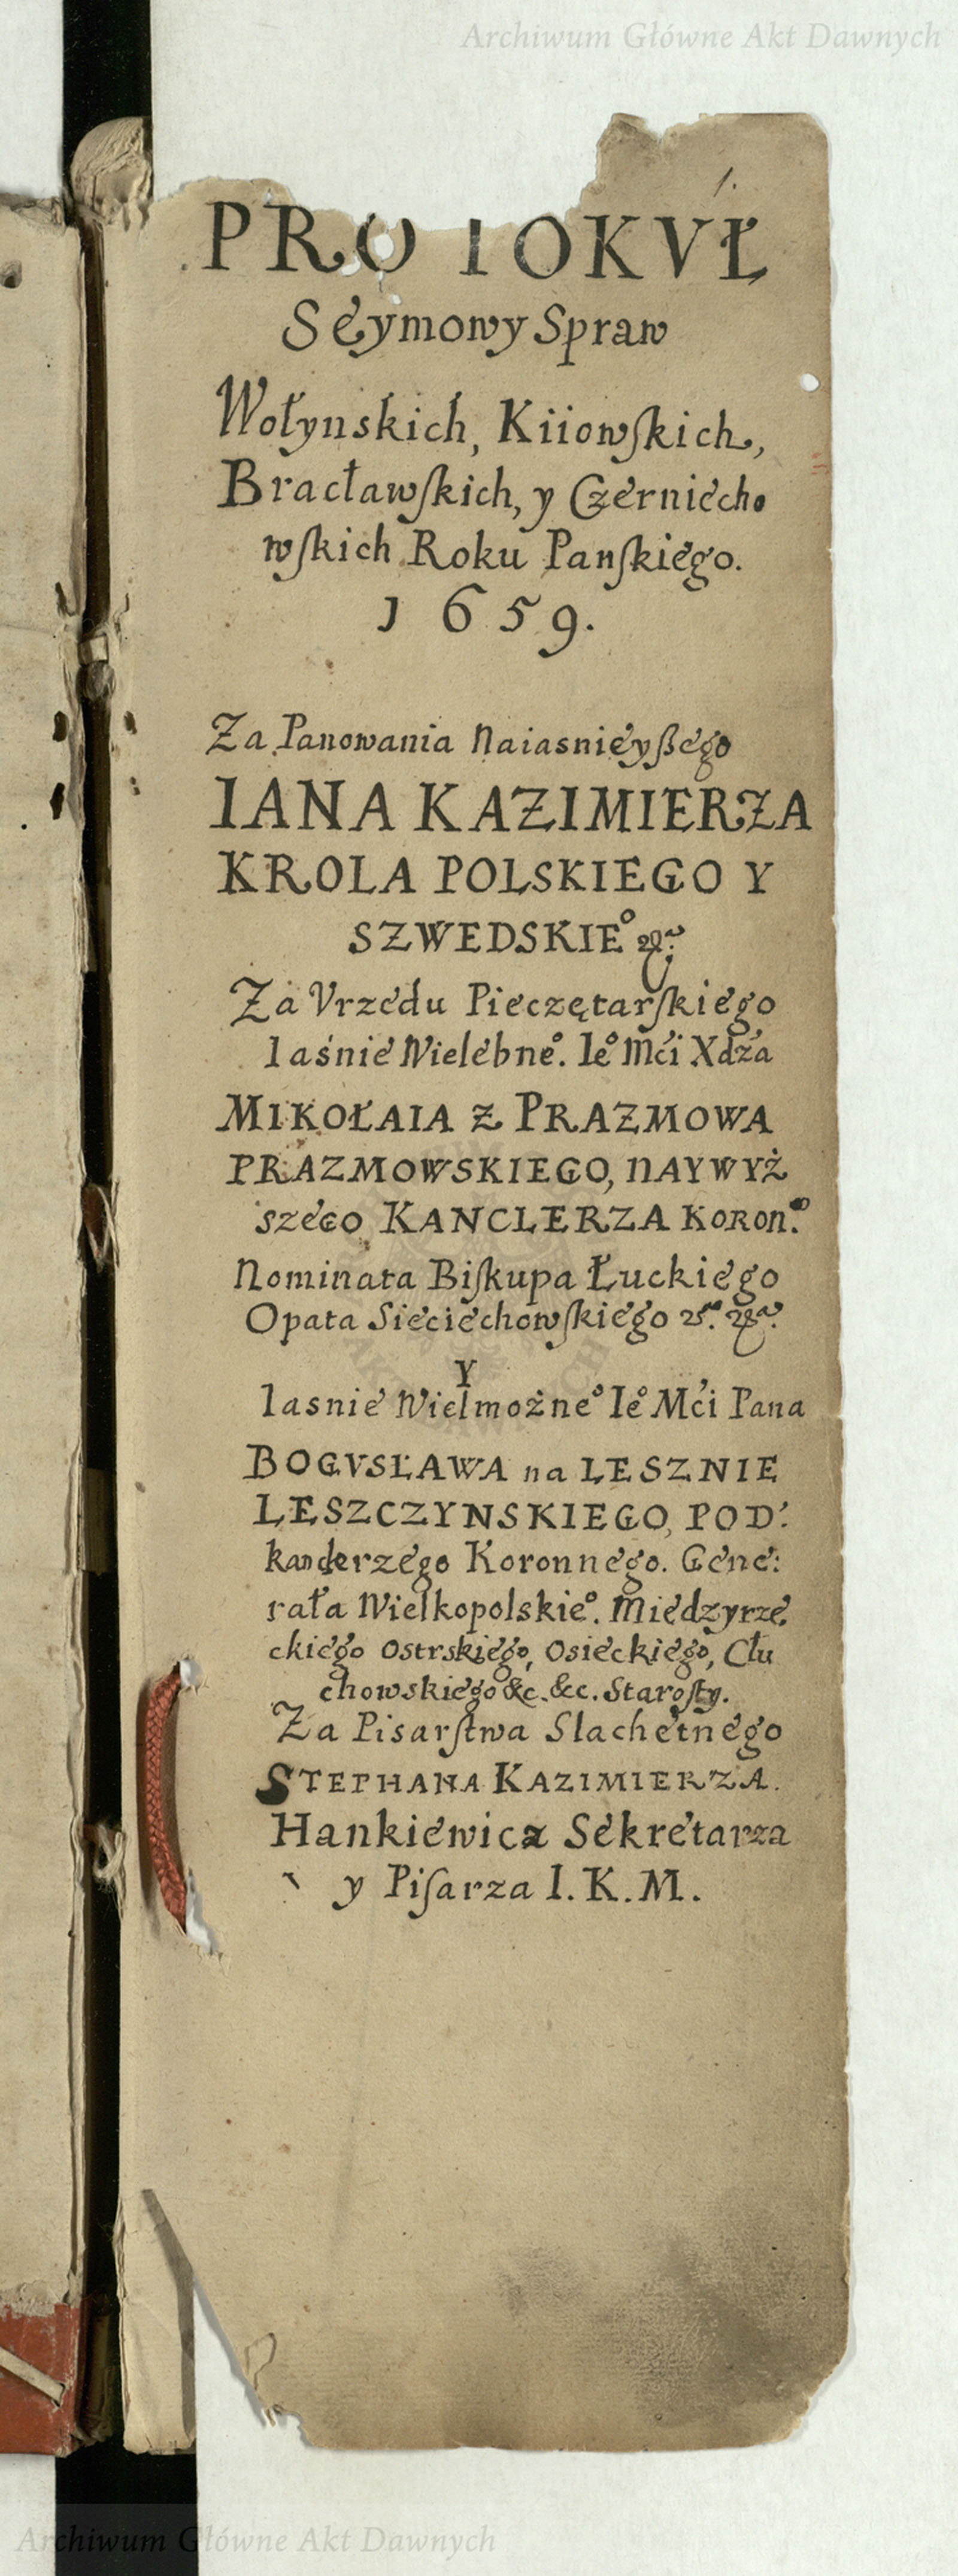 Archiwum Główne Akt Dawnych
1.
PROTOKVŁ
Seymowy Spraw
Wołynskich, Kiiowſkich,
Bracławſkich, y Czerniecho
wſkich Roku Panſkiego.
1659.
Za Panowania Naiasnieyßego
IANA KAZIMIERZA
KROLA POLSKIEGO Y
SZWEDSKIE°
Za Vrzedu Pieczętarſkiego
Iaśnie Wielebne°. Ie° Mći Xdza
MIKOŁAIA Z PRAZMOWA
PRAZMOWSKIEGO, NAYWYŻ
szego KANCLERZA KORON°.
Nominata Biſkupa Łuckiego
Opata Sieciechowſkiego
Y
Iasnie Wielmożne° Ie° Mći Pana
BOGVSŁAWA na LESZNIE
LESZCZYNSKIEGO, POD:
kanclerzego Koronnego. Gene:
rała Wielkopolskie°. Międzyrze
ckiego Ostrskiego, Osieckiego, Człu
chowskiego &c. &c. Staroſty.
Za Pisarſtwa Slachetnego
STEPHANA KAZIMIERZA.
Hankiewicza Sekretarza
y Piſarza I. K. M.
Archiwum Główne Akt Dawnych